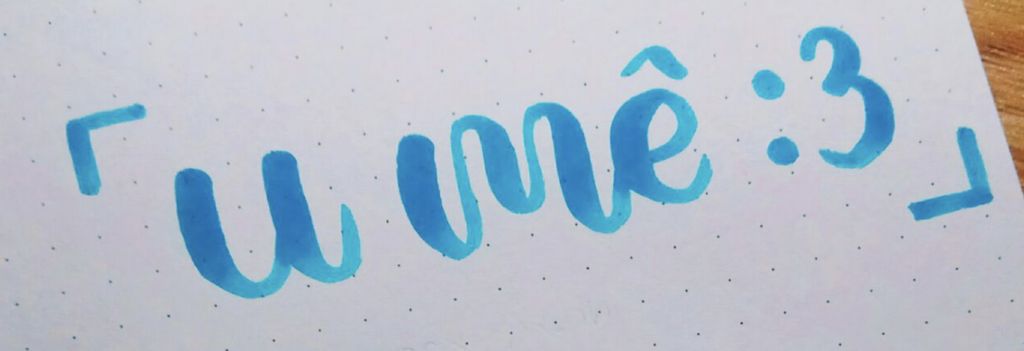 「u mê :3」